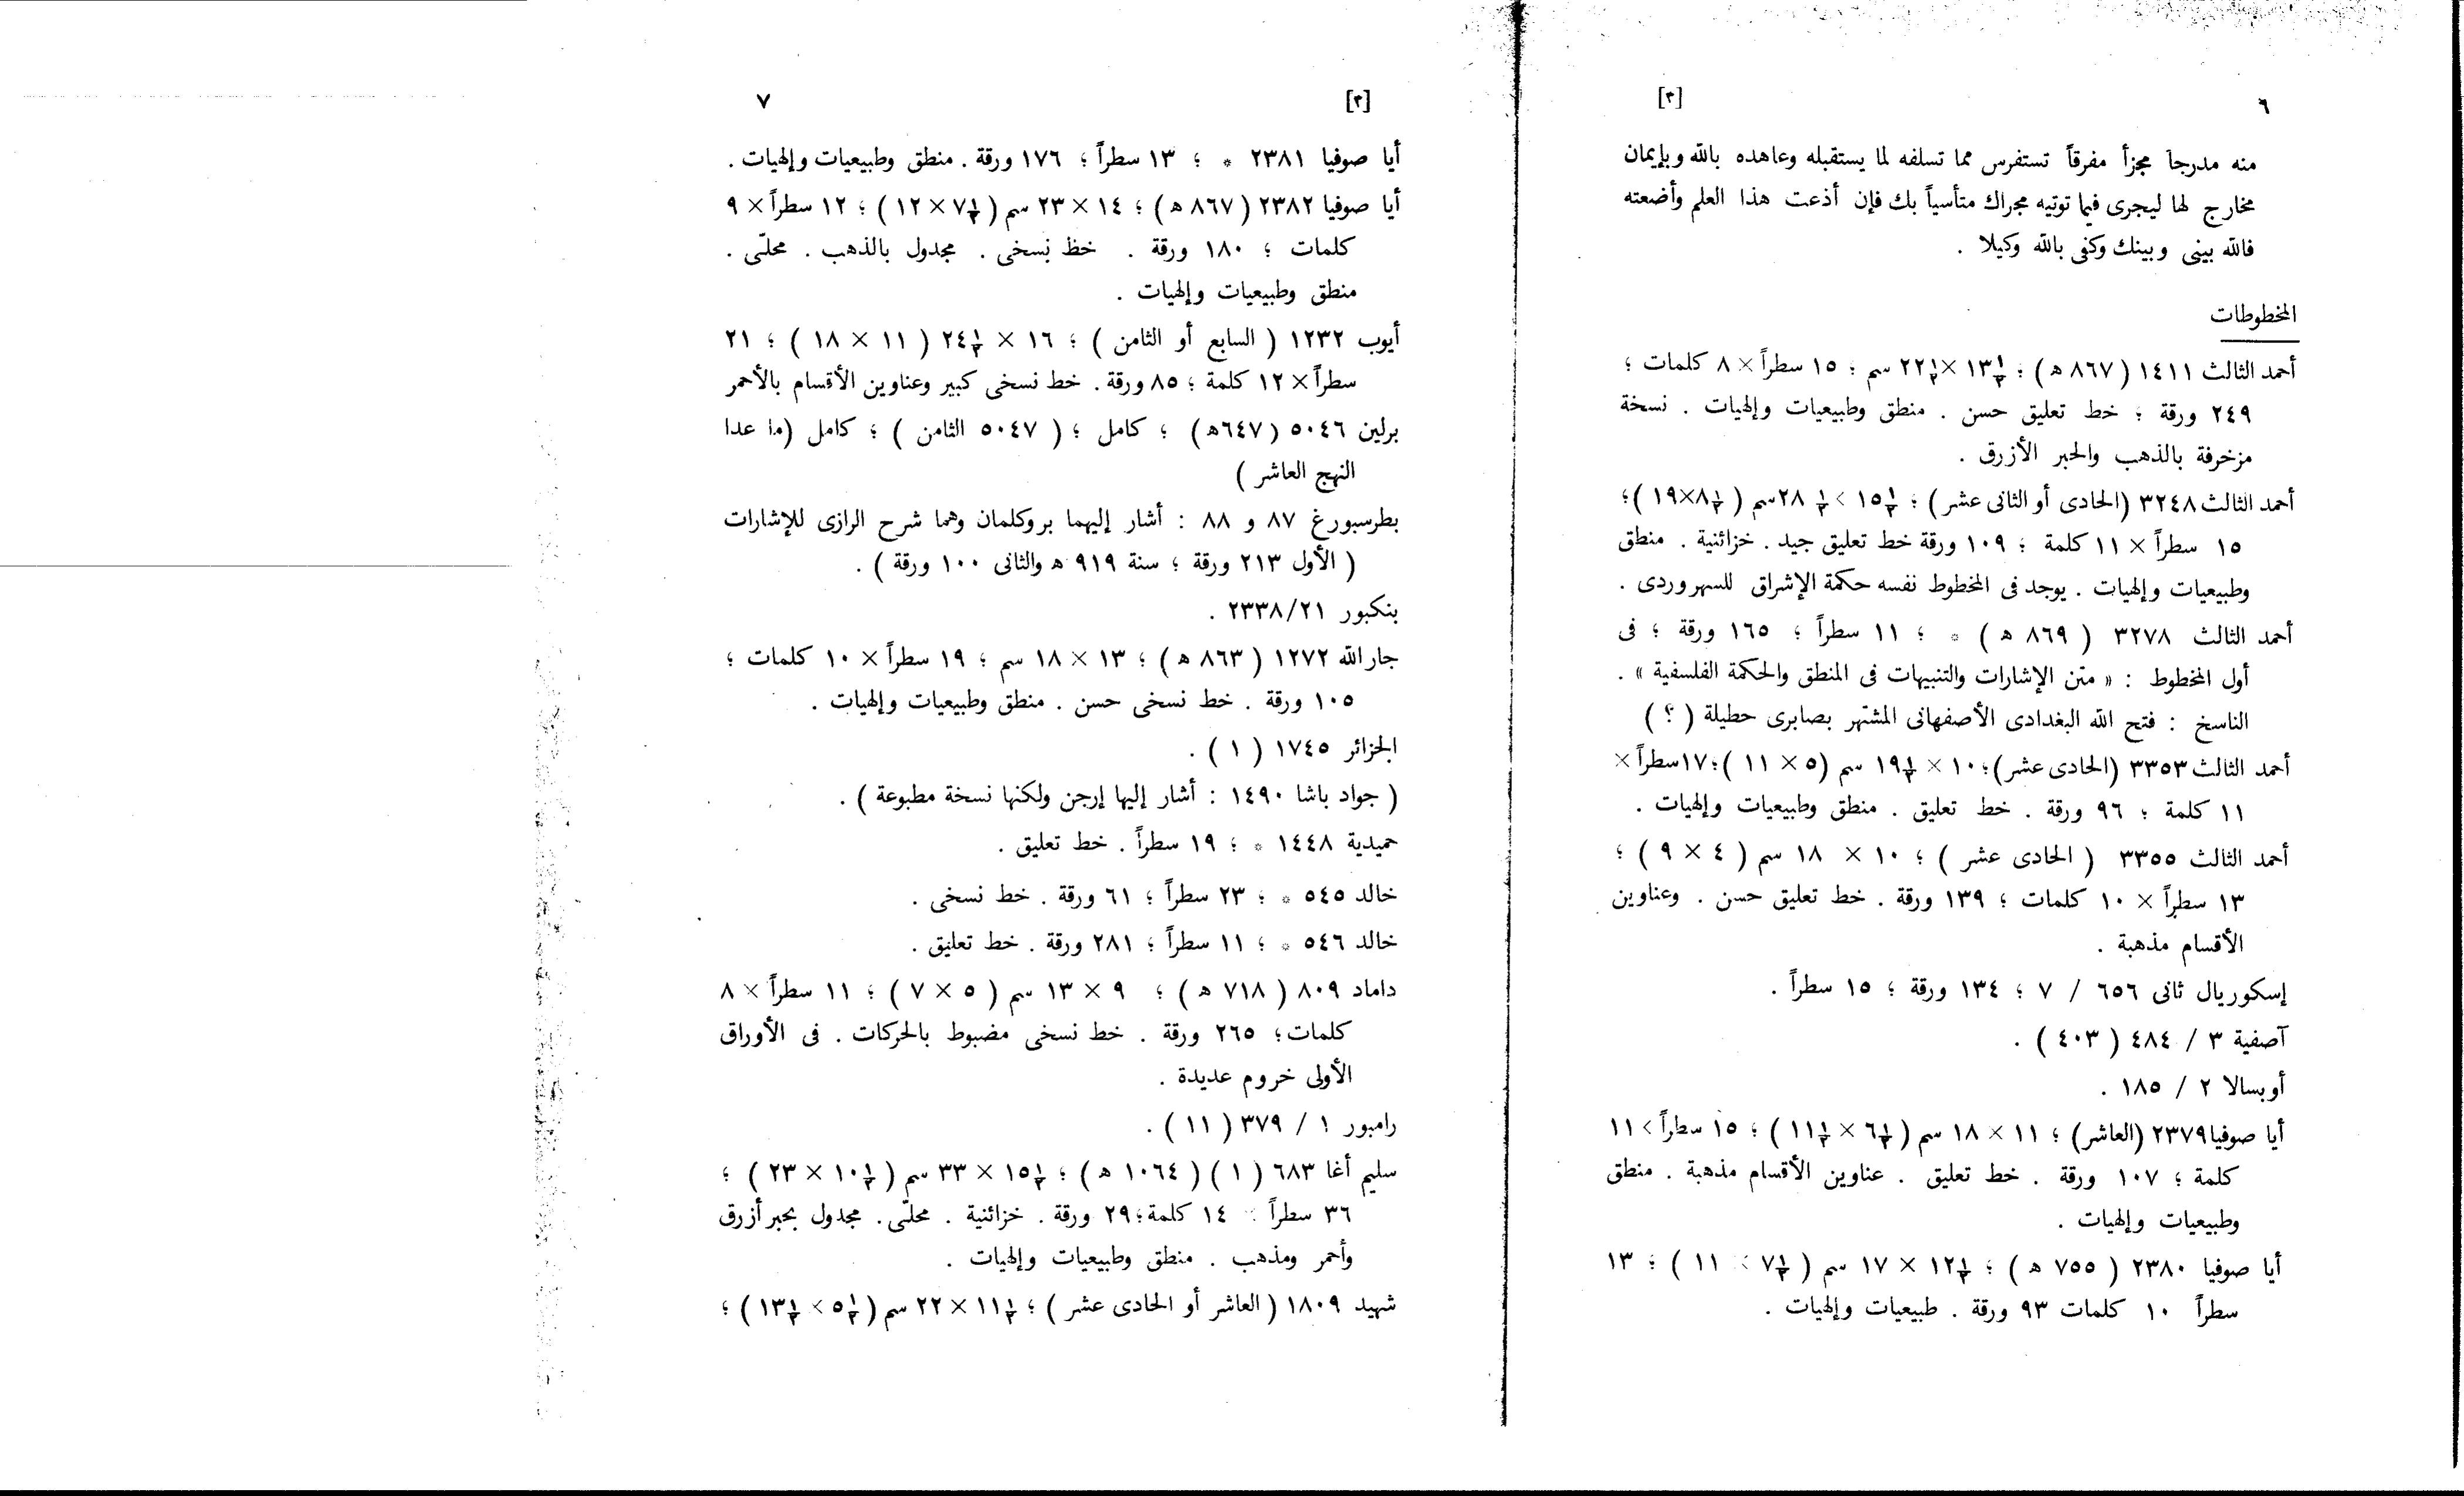 ٦
[٣]
منه مدرجاً مجزأ مفرقاً تستفرس مما تسلفه لما يستقبله وعاهده بالله وبإيمان
مخارج لها ليجرى فيما توتيه مجراك متأسياً بك فإن أذعت هذا العلم وأضعته
فالله بينى وبينك وكفى بالله وكيلا .
المخطوطات
أحمد الثالث ١٤١١ ( ٨٦٧ ه ) ؛ ١٣½ × ٢٢½ سم ؛ ١٥ سطراً × ٨ كلمات ؛
٢٤٩ ورقة ؛ خط تعليق حسن . منطق وطبيعيات وإلهيات . نسخة
مزخرفة بالذهب والحبر الأزرق .
أحمد الثالث ٣٢٤٨ (الحادى أو الثانى عشر) ؛ ١٥½ × ٢٨½ سم ( ٨½ × ١٩ ) ؛
١٥ سطراً × ١١ كلمة ؛ ١٠٩ ورقة خط تعليق جيد . خزائنية . منطق
وطبيعيات وإلهيات . يوجد فى المخطوط نفسه حكمة الإشراق للسهروردى .
أحمد الثالث ٣٢٧٨ ( ٨٦٩ ه ) * ؛ ١١ سطراً ؛ ١٦٥ ورقة ؛ فى
أول المخطوط : « متن الإشارات والتنبيهات فى المنطق والحكمة الفلسفية » .
الناسخ : فتح الله البغدادى الأصفهانى المشتهر بصابرى حطيلة ( ؟ )
أحمد الثالث ٣٣٥٣ (الحادى عشر) ؛ ١٠ × ١٩½ سم (٥ × ١١ ) ؛ ١٧ سطراً ×
١١ كلمة ؛ ٩٦ ورقة . خط تعليق . منطق وطبيعيات وإلهيات .
أحمد الثالث ٣٣٥٥ ( الحادى عشر ) ؛ ١٠ × ١٨ سم ( ٤ × ٩ ) ؛
١٣ سطراً × ١٠ كلمات ؛ ١٣٩ ورقة . خط تعليق حسن . وعناوين
الأقسام مذهبة .
إسكوريال ثانى ٦٥٦ / ٧ ؛ ١٣٤ ورقة ؛ ١٥ سطراً .
آصفية ٣ / ٤٨٤ ( ٤٠٣ ) .
أوبسالا ٢ / ١٨٥ .
أيا صوفيا ٢٣٧٩ (العاشر) ؛ ١١ × ١٨ سم ( ٦½ × ١١½ ) ؛ ١٥ سطراً × ١١
كلمة ؛ ١٠٧ ورقة . خط تعليق . عناوين الأقسام مذهبة . منطق
وطبيعيات وإلهيات .
أيا صوفيا ٢٣٨٠ ( ٧٥٥ ه ) ؛ ١٢½ × ١٧ سم ( ٧½ × ١١ ) ؛ ١٣
سطراً ١٠ كلمات ٩٣ ورقة . طبيعيات وإلهيات .
[٣]
٧
أيا صوفيا ٢٣٨١ * ؛ ١٣ سطراً ؛ ١٧٦ ورقة . منطق وطبيعيات وإلهيات .
أيا صوفيا ٢٣٨٢ ( ٨٦٧ ه ) ؛ ١٤ × ٢٣ سم ( ٧½ × ١٢ ) ؛ ١٢ سطراً × ٩
كلمات ؛ ١٨٠ ورقة . خط نسخى . مجدول بالذهب . محلّى .
منطق وطبيعيات وإلهيات .
أيوب ١٢٣٢ ( السابع أو الثامن ) ؛ ١٦ × ٢٤½ ( ١١ × ١٨ ) ؛ ٢١
سطراً × ١٢ كلمة ؛ ٨٥ ورقة . خط نسخى كبير وعناوين الأقسام بالأحمر
برلين ٥٠٤٦ ( ٦٤٧ه ) ؛ كامل ؛ ( ٥٠٤٧ الثامن ) ؛ كامل (ما عدا
النهج العاشر )
بطرسبورغ ٨٧ و ٨٨ : أشار إليهما بروكلمان وهما شرح الرازى للإشارات
( الأول ٢١٣ ورقة ؛ سنة ٩١٩ ه والثانى ١٠٠ ورقة ) .
بنكبور ٢٣٣٨/٢١ .
جارالله ١٢٧٢ ( ٨٦٣ ه ) ؛ ١٣ × ١٨ سم ؛ ١٩ سطراً × ١٠ كلمات ؛
١٠٥ ورقة . خط نسخى حسن . منطق وطبيعيات وإلهيات .
الجزائر ١٧٤٥ ( ١ ) .
( جواد باشا ١٤٩٠ : أشار إليها إرجن ولكنها نسخة مطبوعة ) .
حميدية ١٤٤٨ * ؛ ١٩ سطراً . خط تعليق .
خالد ٥٤٥ * ؛ ٢٣ سطراً ؛ ٦١ ورقة . خط نسخى .
خالد ٥٤٦ * ؛ ١١ سطراً ؛ ٢٨١ ورقة . خط تعليق .
داماد ٨٠٩ ( ٧١٨ ه ) ؛ ٩ × ١٣ سم ( ٥ × ٧ ) ؛ ١١ سطراً × ٨
كلمات ؛ ٢٦٥ ورقة . خط نسخى مضبوط بالحركات . فى الأوراق
الأولى خروم عديدة .
رامبور ١ / ٣٧٩ ( ١١ ) .
سليم أغا ٦٨٣ ( ١ ) ( ١٠٦٤ ه ) ؛ ١٥½ × ٣٣ سم ( ١٠½ × ٢٣ ) ؛
٣٦ سطراً × ١٤ كلمة ؛ ٢٩ ورقة . خزائنية . محلّى . مجدول بحبر أزرق
وأحمر ومذهب . منطق وطبيعيات وإلهيات .
شهيد ١٨٠٩ ( العاشر أو الحادى عشر ) ؛ ١١½ × ٢٢ سم ( ٥½ × ١٣½ ) ؛